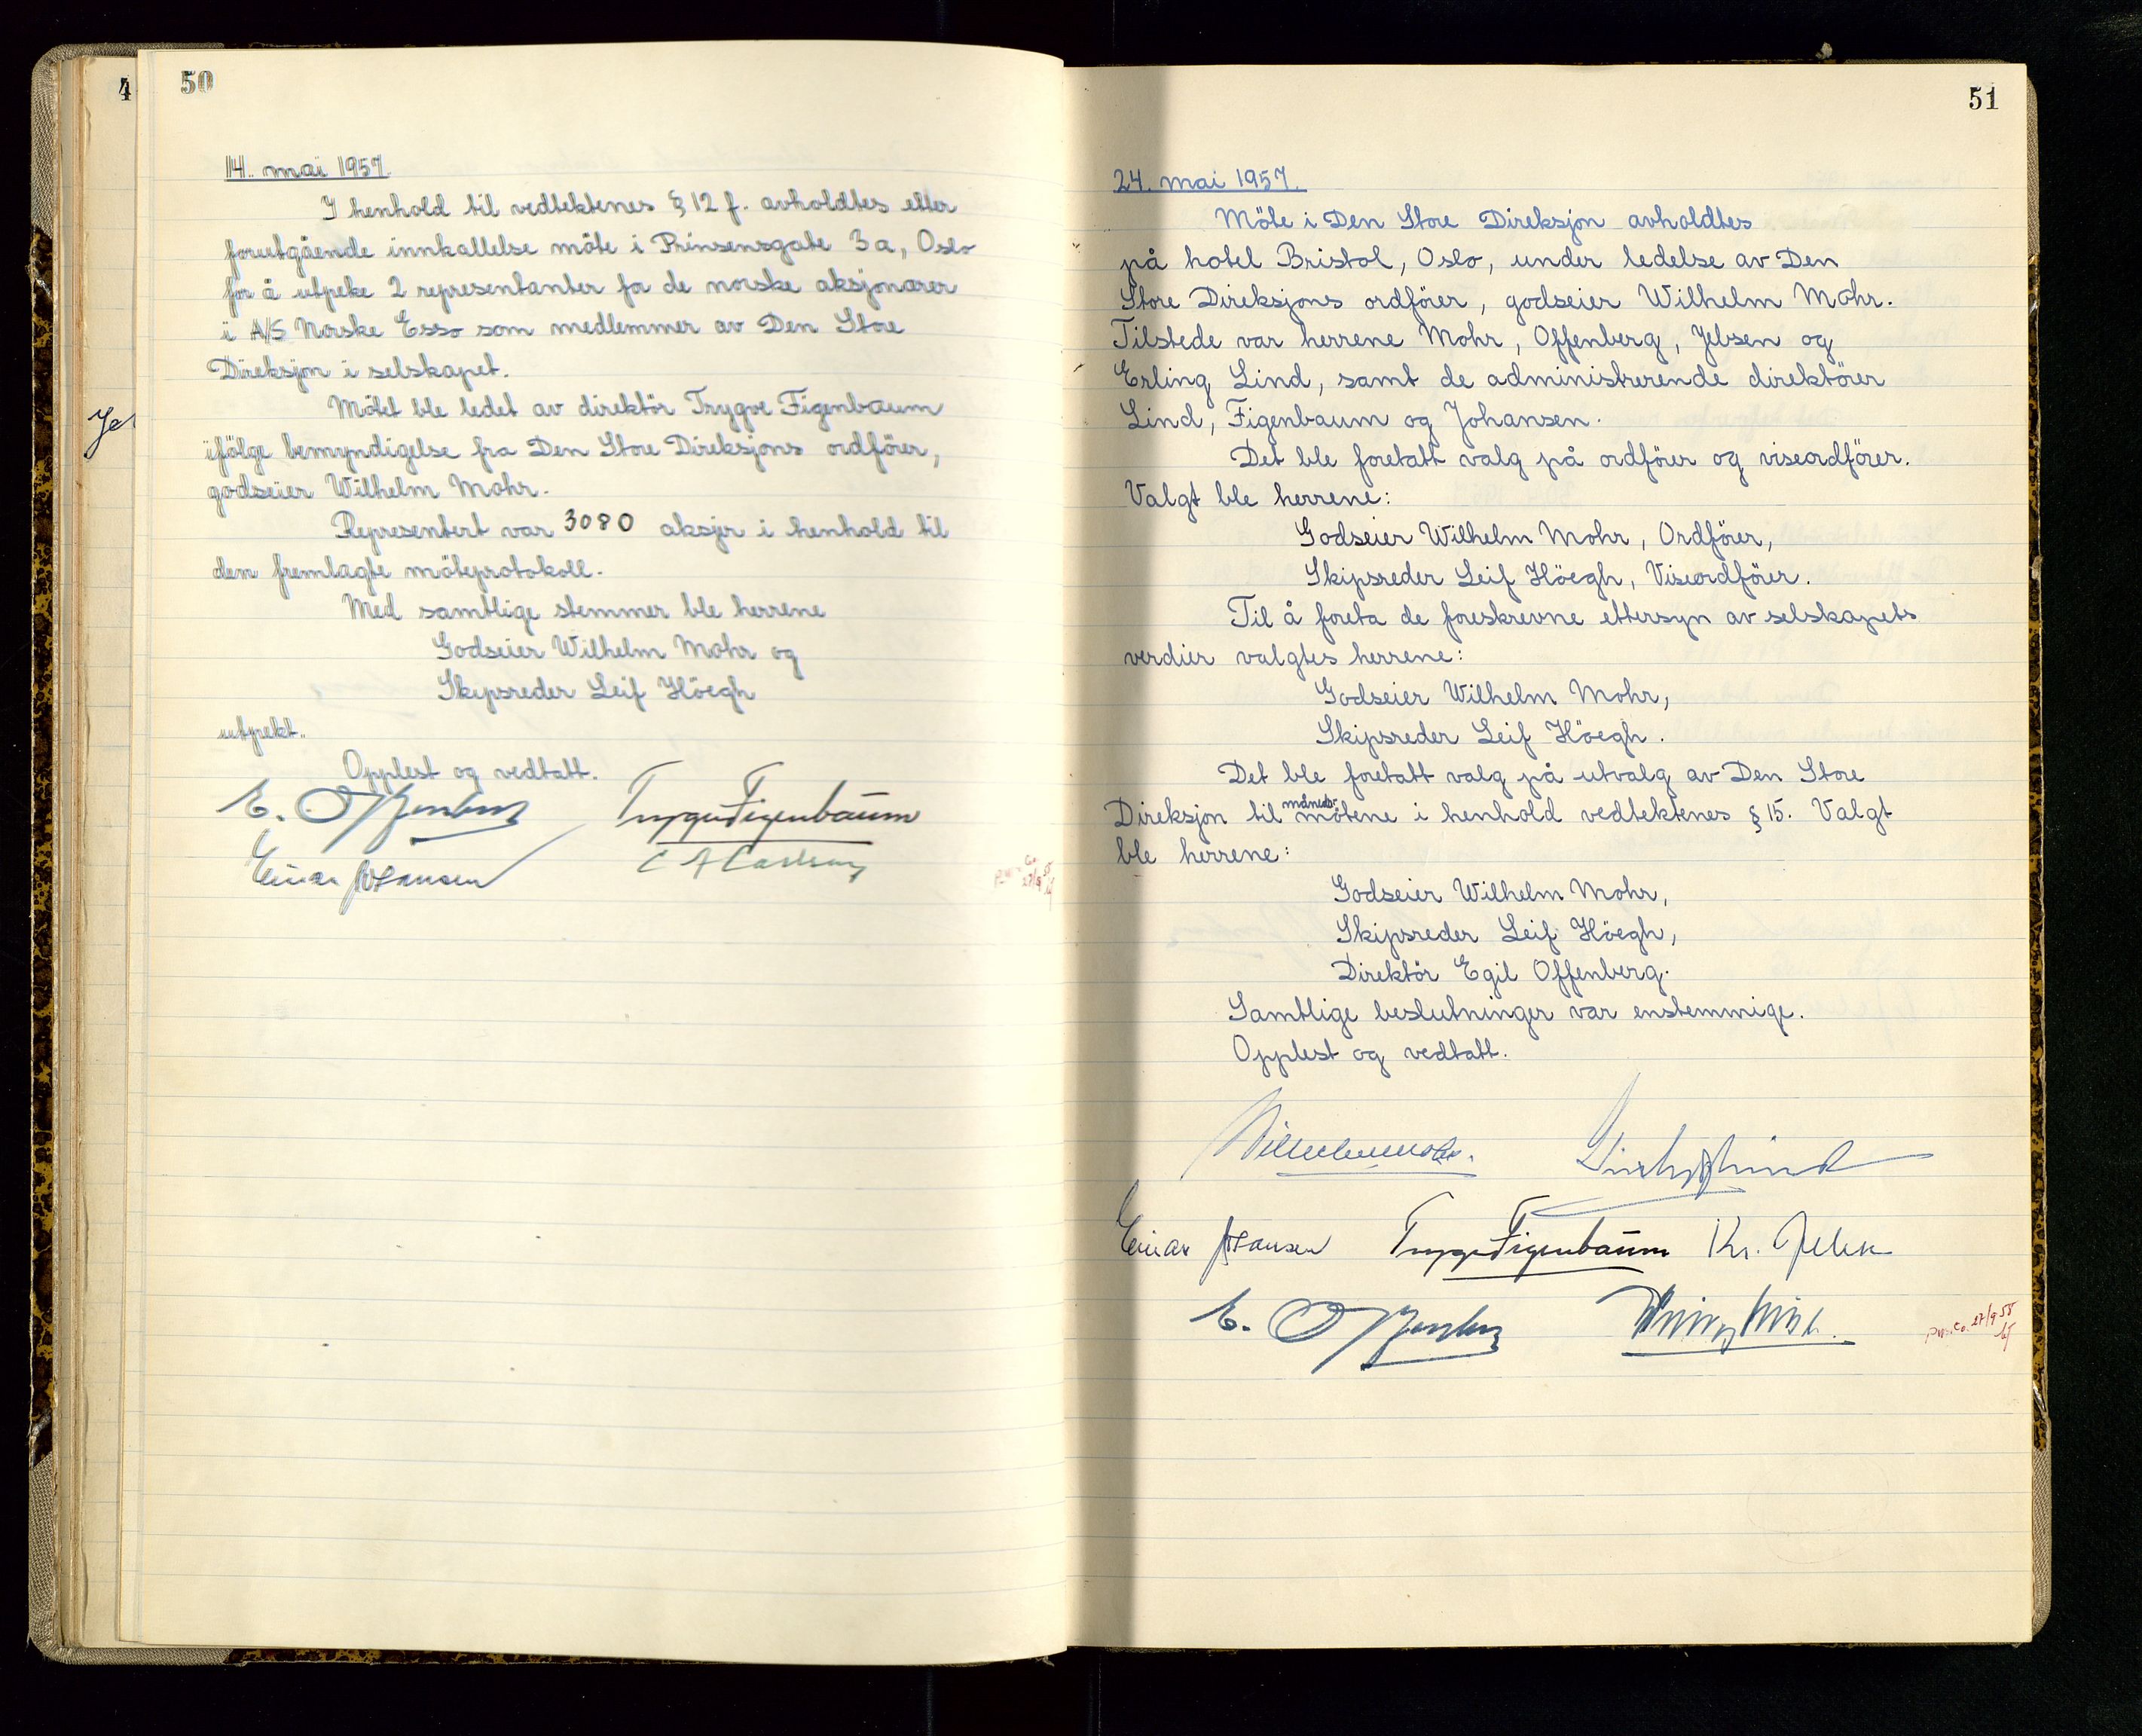 50
14. mai 1957.
I henhold til vedtektenes § 12 f. avholdtes etter
forutgående innkallelse möte i Prinsensgate 3a, Oslo
for å utpeke 2 representanter for de norske aksjonærer
i A/S Norske Esso som medlemmer av Den Store
Direksjon i selskapet.
Mötet ble ledet av direktör Trygve Figenbaum
ifölge bemyndigelse fra Den Store Direksjons ordförer,
godseier Wilhelm Mohr.
Representert var 3080 aksjer i henhold til
den fremlagte möteprotokoll.
Med samtlige stemmer ble herrene
Godseier Wilhelm Mohr og
Skipsreder Leif Höegh
utpekt.
Opplest og vedtatt.
E. Offenberg Trygve Figenbaum
Einar Johansen C A Carlsen
51
24. mai 1957.
Möte i Den Store Direksjon avholdtes
på hotel Bristol, Oslo, under ledelse av Den
Store Direksjons ordförer, godseier Wilhelm Mohr.
Tilstede var herrene Mohr, Offenberg, Jebsen og
Erling Lind, samt de administrerende direktörer
Lind, Figenbaum og Johansen.
Det ble foretatt valg på ordförer og viseordförer.
Valgt ble herrene:
Godseier Wilhelm Mohr, Ordförer,
Skipsreder Leif Höegh, Viseordförer.
Til å foreta de foreskrevne ettersyn av selskapets
verdier valgtes herrene:
Godseier Wilhelm Mohr,
Skipsreder Leif Höegh.
Det ble foretatt valg på utvalg av Den Store
Direksjon til måneds-mötene i henhold vedtektenes § 15. Valgt
ble herrene:
Godseier Wilhelm Mohr,
Skipsreder Leif Höegh,
Direktör Egil Offenberg.
Samtlige beslutninger var enstemmige.
Opplest og vedtatt.
Wilhelm Mohr.
Einar Johansen Trygve Figenbaum Kr. Jebsen
E. Offenberg